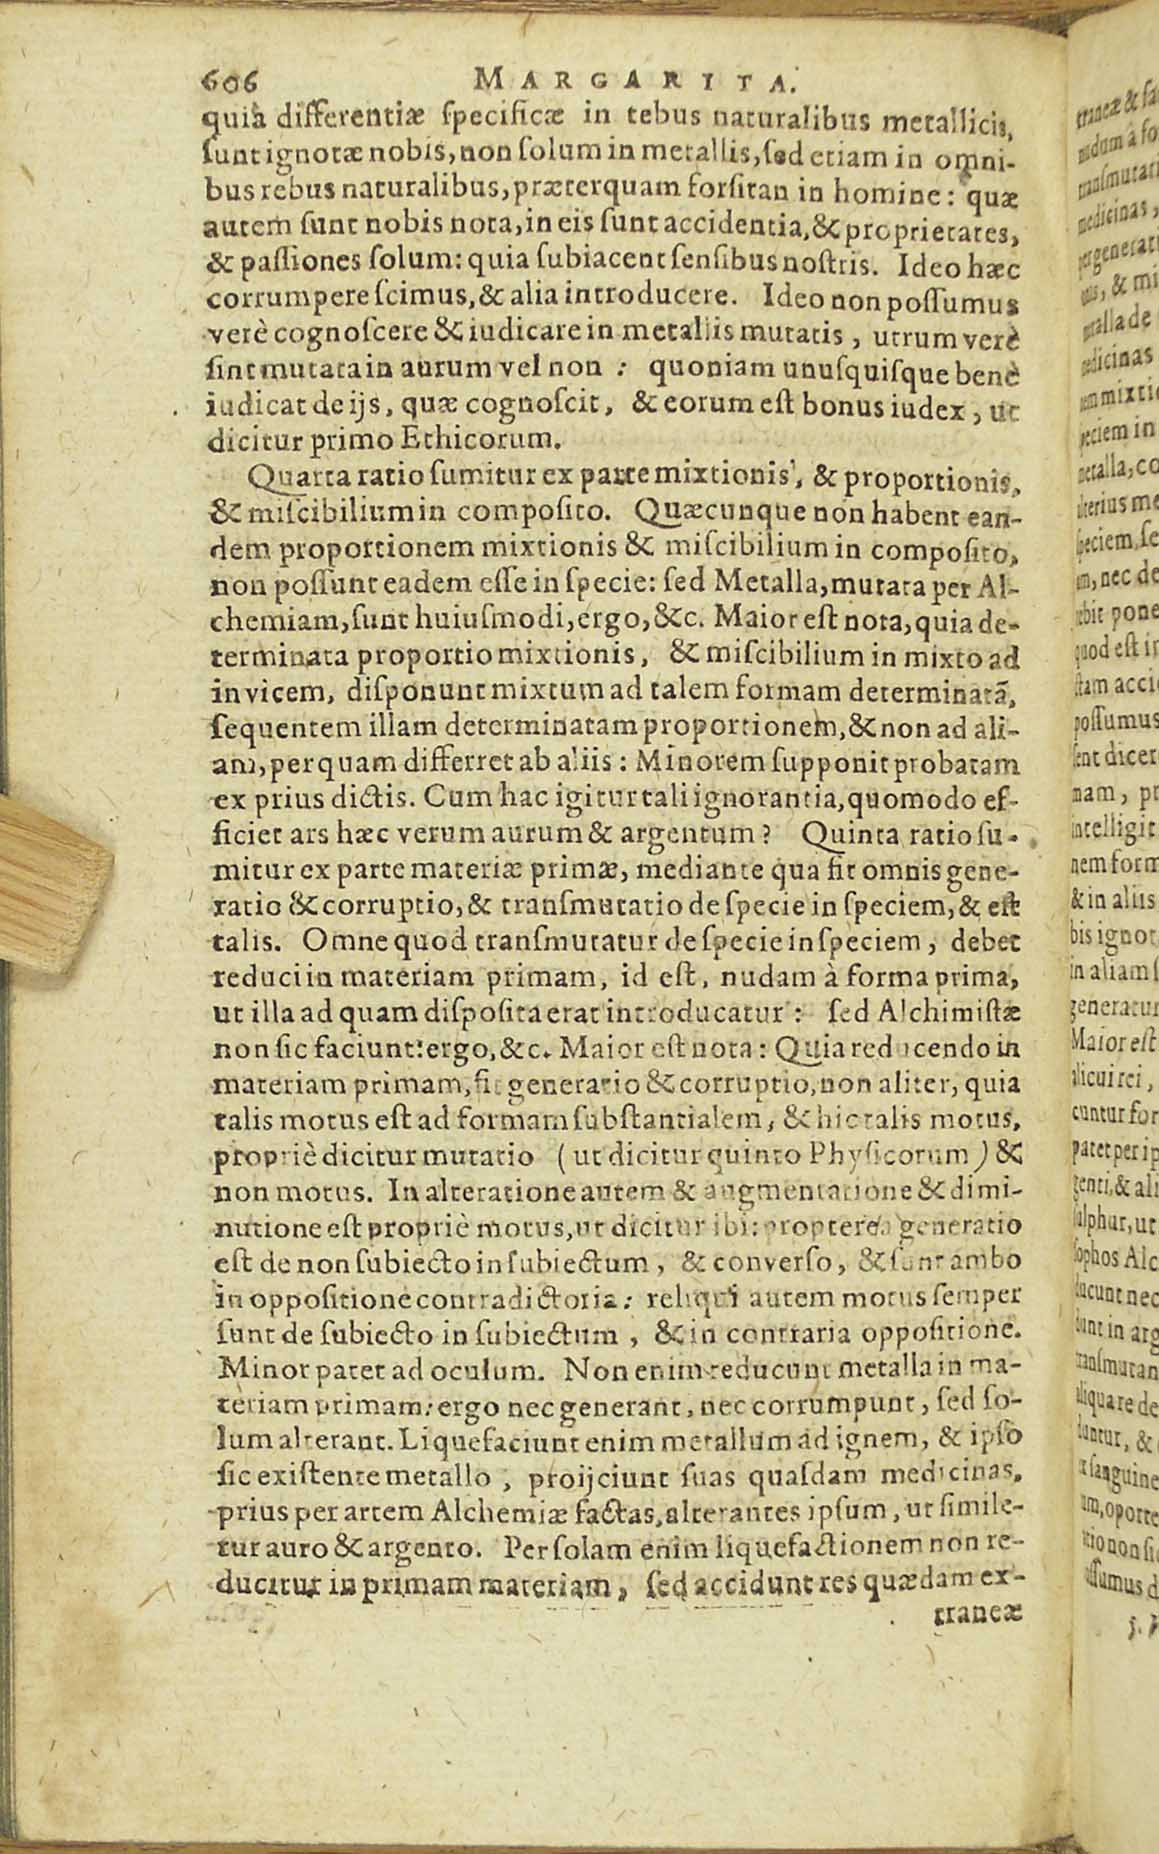 606 MARGARITA.
quia differentiæ ſpecificæ in tebus naturalibus metallicis,
ſunt ignotæ nobis, non ſolum in metallis, ſed etiam in omni-
bus rebus naturalibus, præterquam forſitan in homine: quæ
autem ſunt nobis nota, in eis ſunt accidentia, & proprietates,
& paſſiones ſolum: quia ſubiacent ſenſibus noſtris. Ideo hæc
corrumpere ſcimus, & alia introducere. Ideo non poſſumus
verè cognoſcere & iudicare in metallis mutatis, utrum verè
ſint mutata in aurum vel non: quoniam unuſquiſque benè
iudicat de ijs, quæ cognoſcit, & eorum eſt bonus iudex, ut
dicitur primo Ethicorum.
Quarta ratio ſumitur ex parte mixtionis, & proportionis,
& miſcibilium in compoſito. Quæcunque non habent ean-
dem proportionem mixtionis & miſcibilium in compoſito,
non poſſunt eadem eſſe in ſpecie: ſed Metalla, mutata per Al-
chemiam, ſunt huiuſmodi, ergo, &c. Maior eſt nota, quia de-
terminata proportio mixtionis, & miſcibilium in mixto ad
invicem, diſponunt mixtum ad talem formam determinatã,
ſequentem illam determinatam proportionem, & non ad ali-
am, per quam differret ab aliis: Minorem ſupponit probatam
ex prius dictis. Cum hac igitur tali ignorantia, quomodo ef-
ficiet ars hæc verum aurum & argentum? Quinta ratio ſu-
mitur ex parte materiæ primæ, mediante qua fit omnis gene-
ratio & corruptio, & tranſmutatio de ſpecie in ſpeciem, & eſt
talis. Omne quod tranſmutatur de ſpecie in ſpeciem, debet
reduci in materiam primam, id eſt, nudam à forma prima,
ut illa ad quam diſpoſita erat introducatur: ſed Alchimiſtæ
non ſic faciunt: ergo, &c. Maior eſt nota: Quia reducendo in
materiam primam, fit generatio & corruptio, non aliter, quia
talis motus eſt ad formam ſubſtantialem, & hic talis motus,
propriè dicitur mutatio (ut dicitur quinto Phyſicorum) &
non motus. In alteratione autem & augmentatione & dimi-
nutione eſt propriè motus, ut dicitur ibi: propterea generatio
eſt de non ſubiecto in ſubiectum, & converſo, & ſunt ambo
in oppoſitione contradictoria: reliqui autem motus ſemper
ſunt de ſubiecto in ſubiectum, & in contraria oppoſitione.
Minor patet ad oculum. Non enim reducunt metalla in ma-
teriam primam: ergo nec generant, nec corrumpunt, ſed ſo-
lum alterant. Liquefaciunt enim metallum ad ignem, & ipſo
ſic exiſtente metallo, proijciunt ſuas quaſdam medicinas,
prius per artem Alchemiæ factas, alterantes ipſum, ut ſimile-
tur auro & argento. Per ſolam enim liquefactionem non re-
ducitur in primam materiam, ſed accidunt res quædam ex-
traneæ
traneæ & 
nudam à fo
tranſmutati
medicinas,
per generati
& mi
metalla de
medicinas
mixtio
ſpeciem in
metalla, co
ulterius me
ſpeciem, ſe
nec de
debit pone
quod eſt in
ſtam acci
poſſumus
ſent dicer
nam, pr
intelligit
nem form
& in aliis
bis ignot
in aliam ſ
generatur
Maior eſt
alicui rei,
cuntur for
patet per ip
genti, & ali
ſulphur, ut
ſophos Alc
ducunt nec
dunt in arg
tranſmutan
aliqua re de
&
ſanguine
um, oporte
non ſi